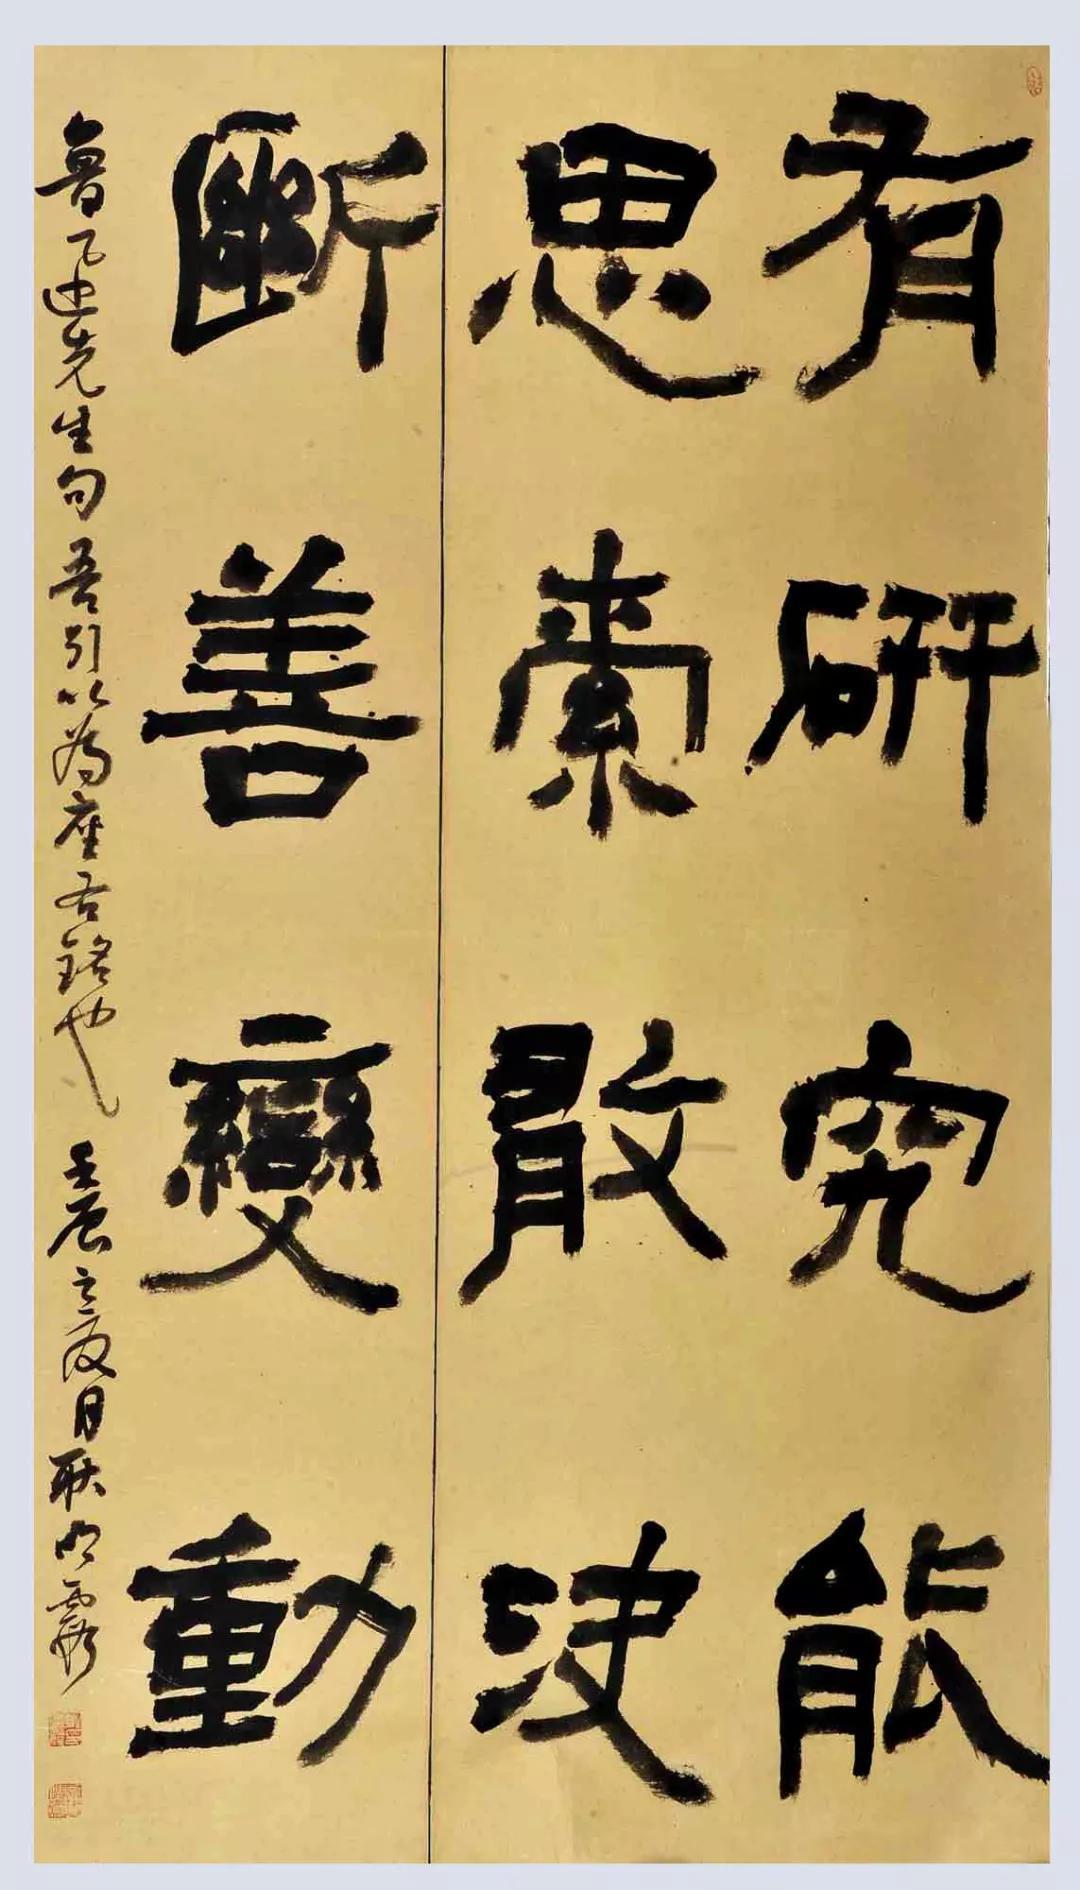 有研究能
思索敢決
斷善變動
魯先生句吾引以為座右銘也 壬辰之夏日耿